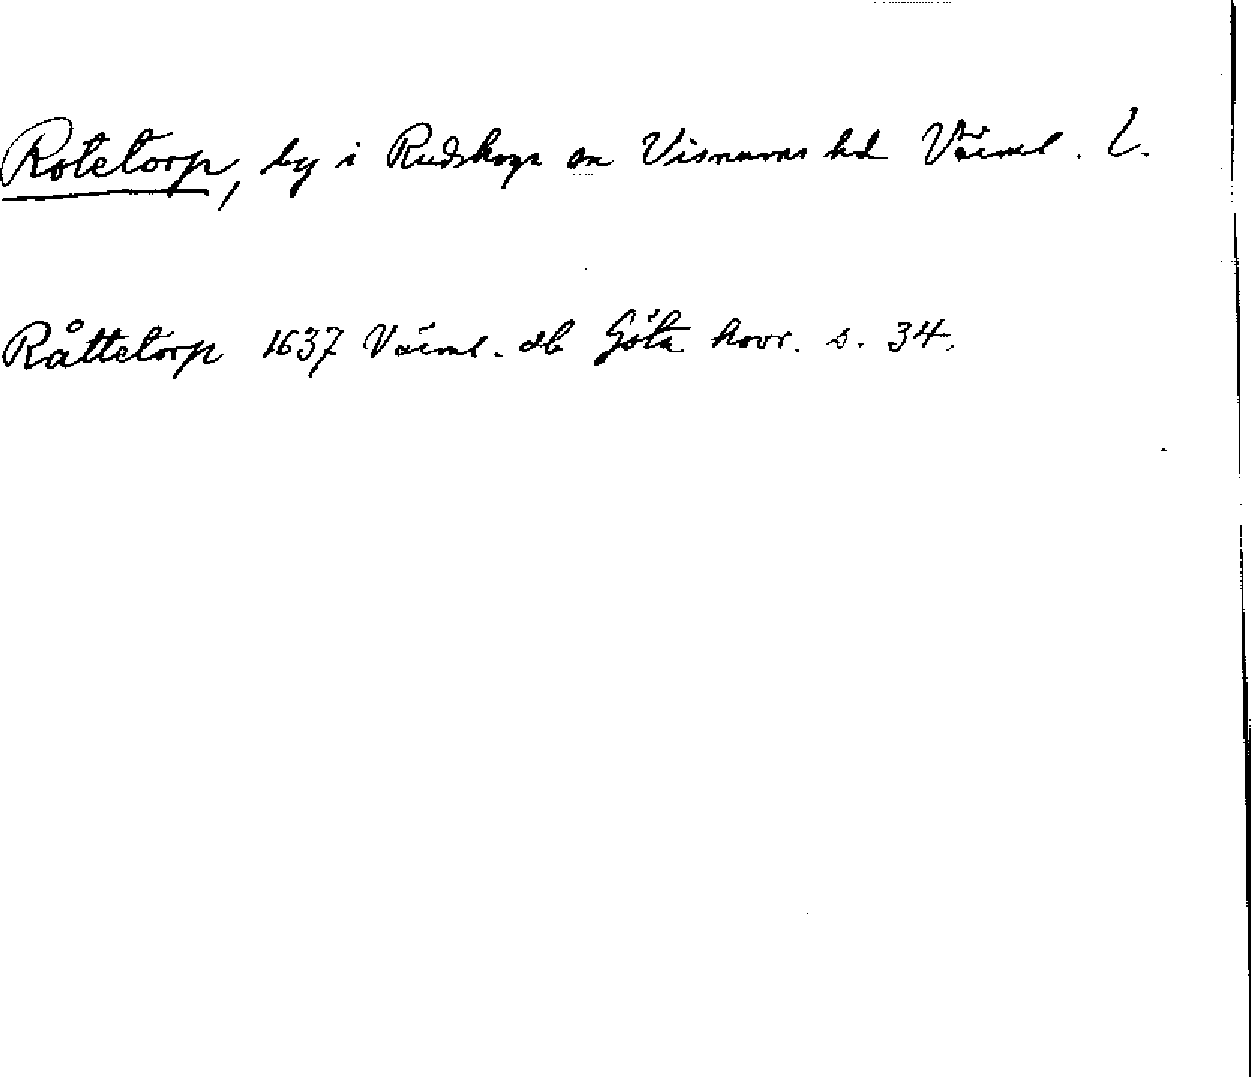 Rotetorp, by i Rudskoga sn Visnums hd Värml. l.
Råttetorp 1637 Värml. db Göta hovr. s. 34.